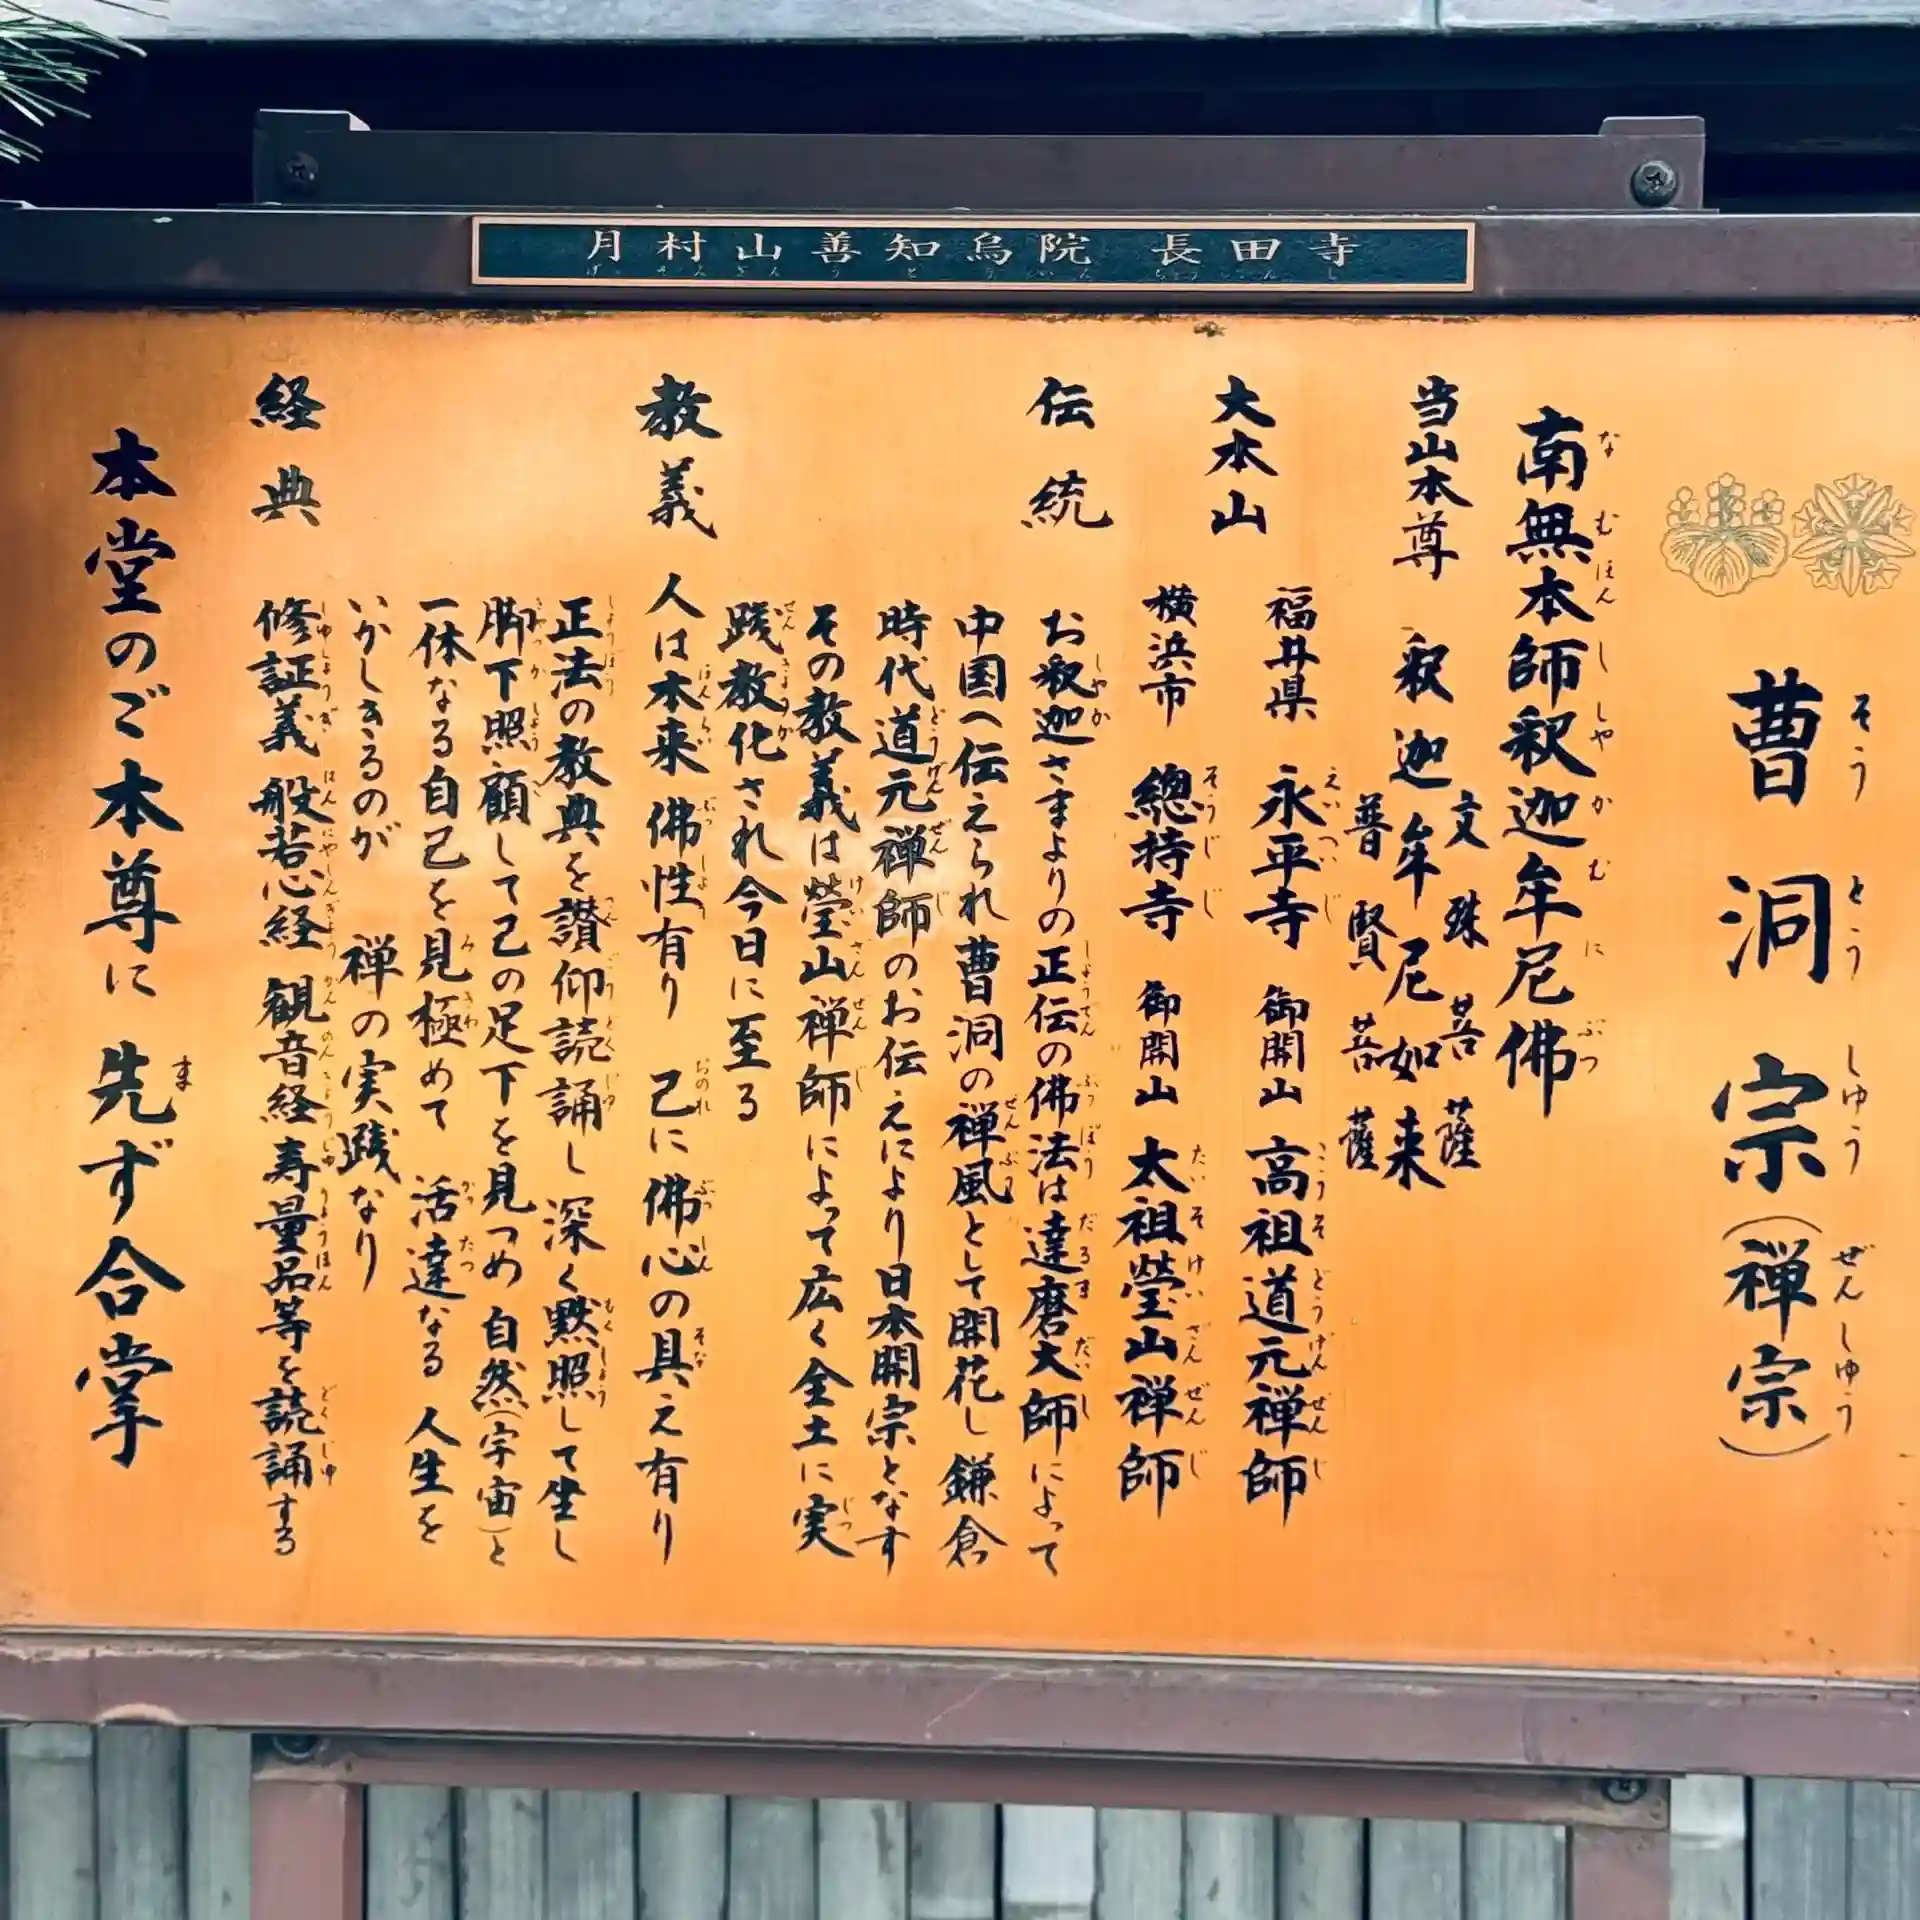 月村山善知烏院 長田寺
曹洞宗(禅宗)
南無本師釈迦牟尼佛
当山本尊 釈迦牟尼如来
文殊菩薩
普賢菩薩
大本山
福井県 永平寺 御開山 高祖道元禅師
横浜市 總持寺 御開山 太祖瑩山禅師
伝統
お釈迦さまよりの正伝の佛法は達磨大師によって
中国へ伝えられ曹洞の禅風として開花し鎌倉
時代道元禅師のお伝えにより日本開宗となす
その教義は瑩山禅師によって広く全土に実
践教化され今日に至る
教義 人は本来佛性有り 己に佛心の具え有り
正法の教典を讃仰読誦し 深く黙照して坐し
脚下照顧して己の足下を見つめ 自然(宇宙)と
一体なる自己を見極めて 活達なる人生を
いかしきるのが 禅の実践なり
経典 修証義 般若心経 観音経 寿量品等を読誦する
本堂のご本尊に 先ず合掌